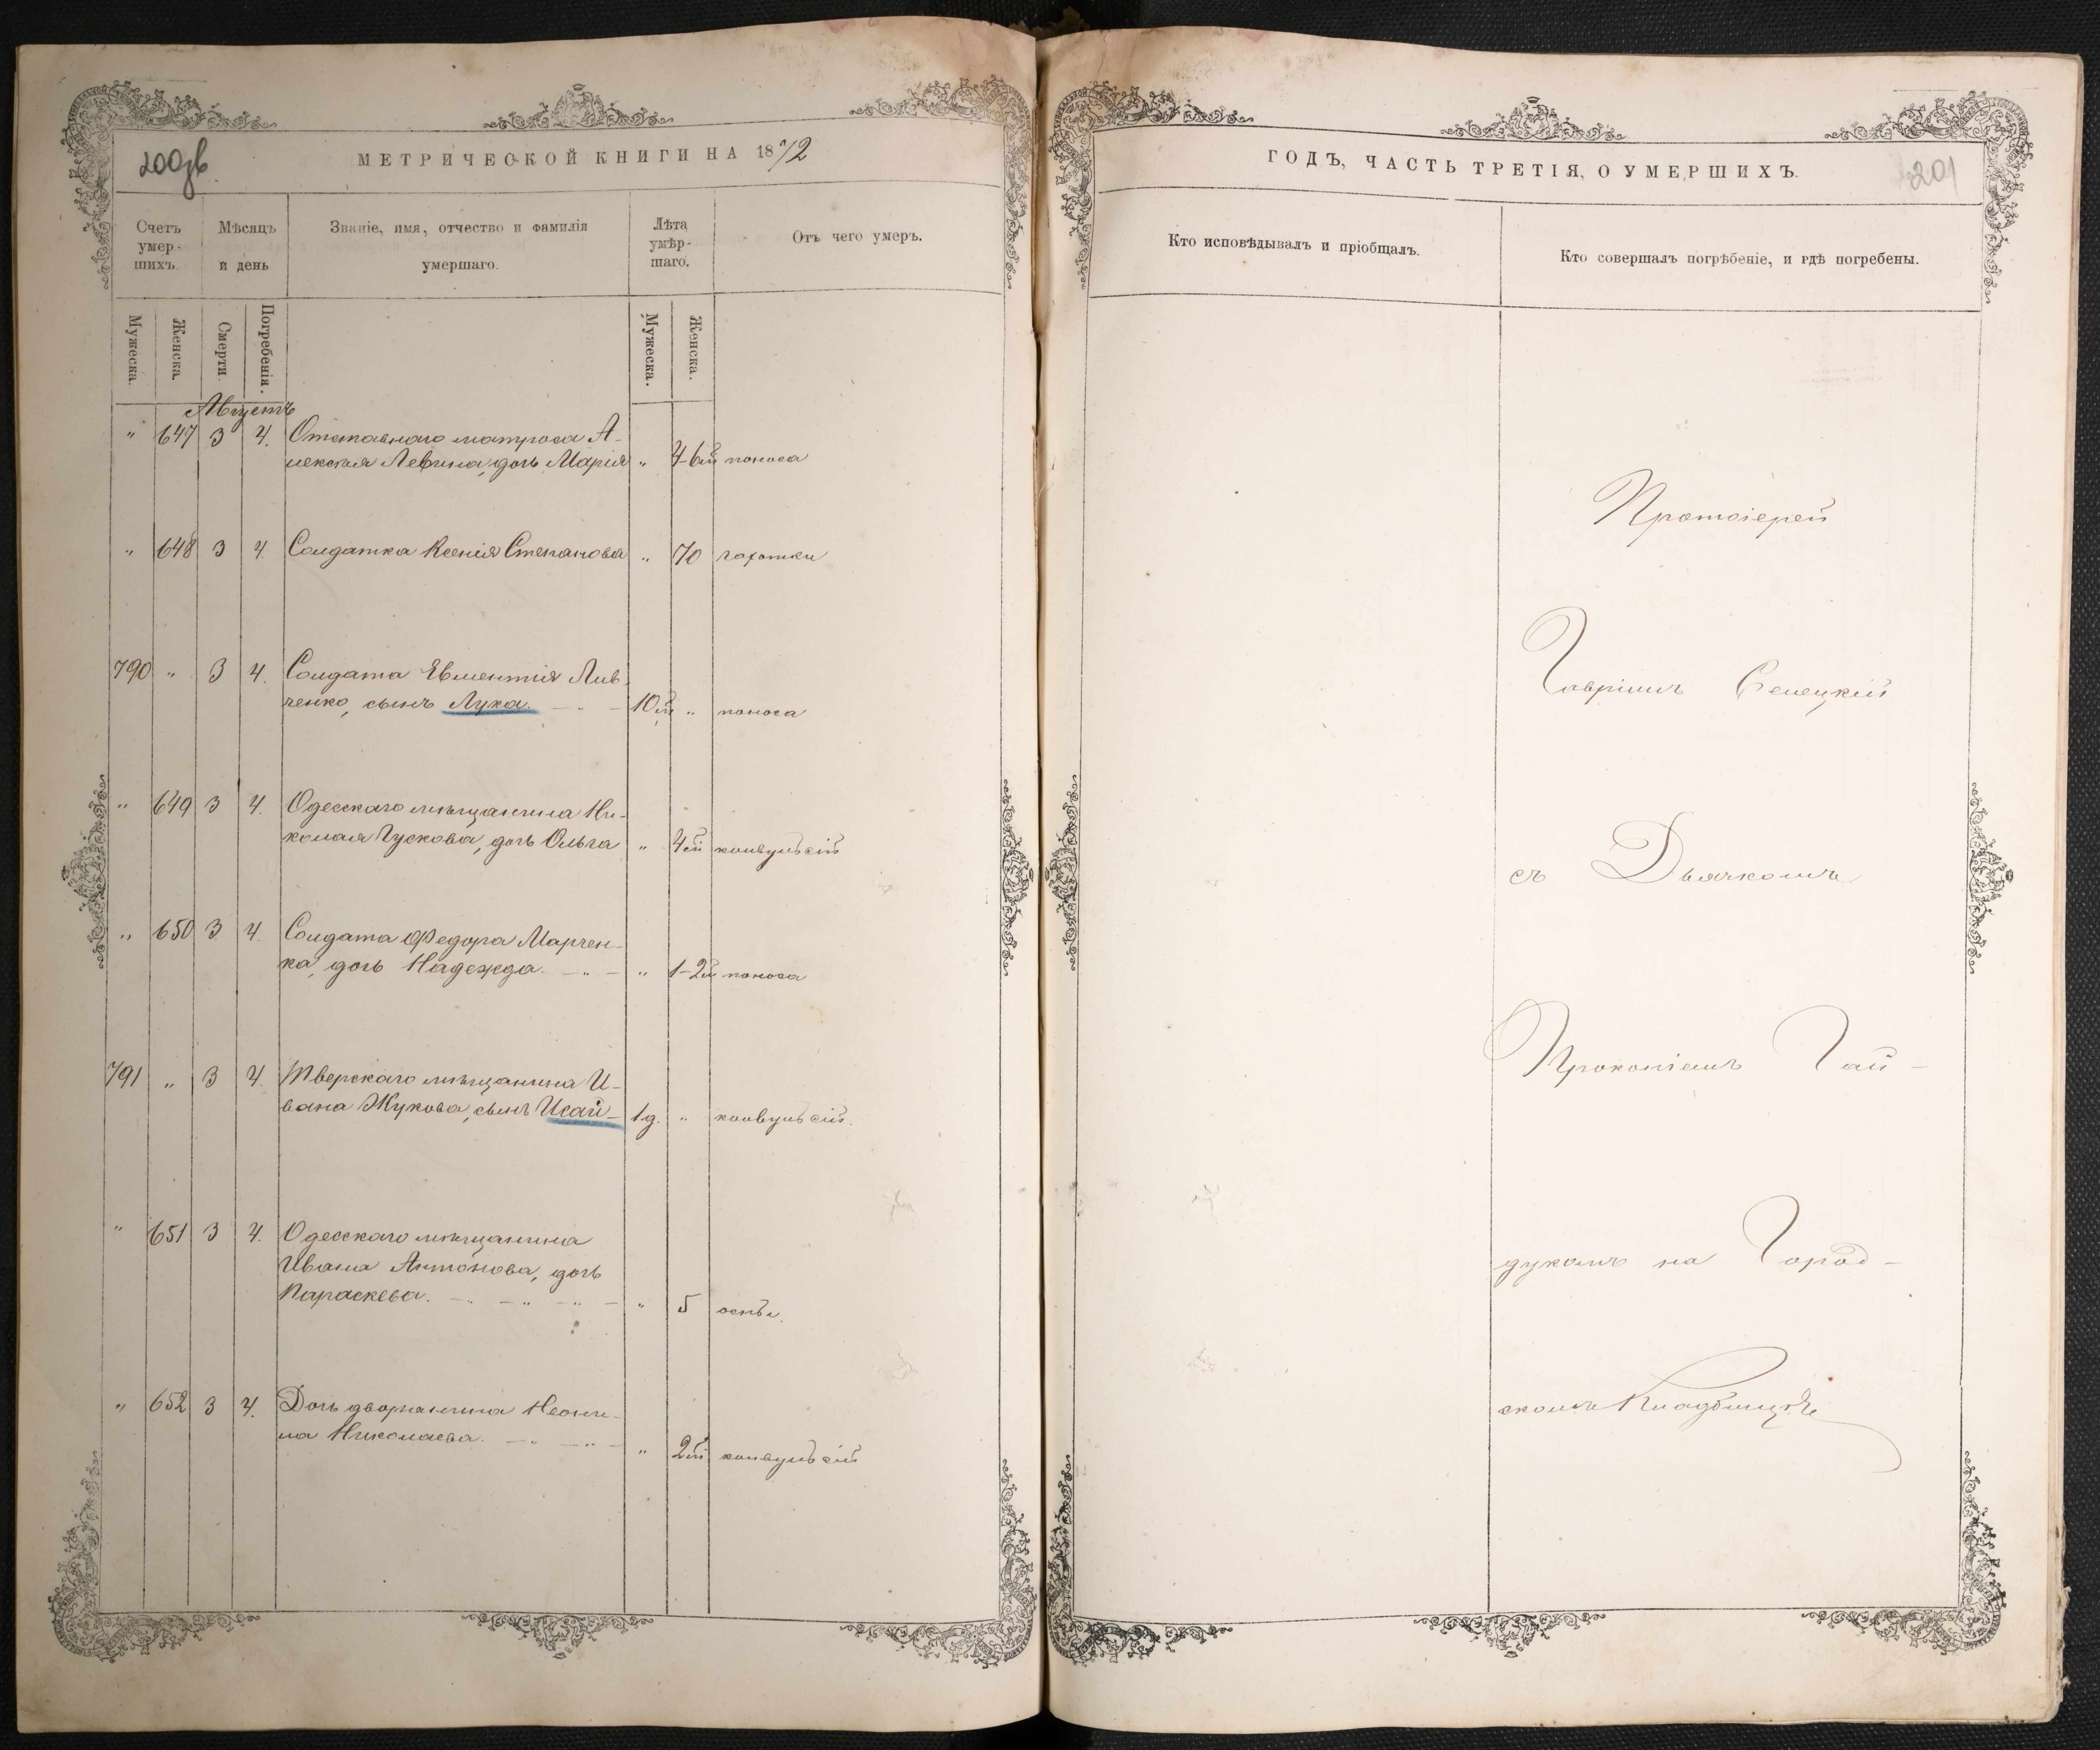 200об
МЕТРИЧЕСКОЙ КНИГИ НА 1872
Счетъ умер- шихъ.
Мѣсяцъ и день
Званіе, имя, отчество и фамилія умершаго.
Лѣта умѣр- шаго.
Отъ чего умеръ.
Мужеска.
Женска.
Смерти.
Погребенія.
Мужеска.
Женска.
Августъ
" 647 3 4. Отставнаго матроса А-
лексѣя Левчина, дочь Марія " 4-6м поноса
" 648 3 4. Солдатка Ксенія Степанова " 70 чахотки
790 " 3 4. Солдата Евментія Лив-
ченко, сынъ Лука. 10м " поноса
" 649 3 4. Одесскаго мѣщанина Ни-
колая Гускова, дочь Ольга " 4м конвульсій
" 650 3 4. Солдата Федора Марчен-
ка, дочь Надежда. " 1-2м поноса
791 " 3 4. Тверскаго мѣщанина И-
вана Жукова, сынъ Исай 1д. " конвульсій.
" 651 3 4. Одесскаго мѣщанина
Ивана Антонова, дочь
Параскева. " 5 оспы.
" 652 3 4. Дочь дворянина Неони-
ла Николаева. " 2м конвульсій
201
ГОДЪ, ЧАСТЬ ТРЕТІЯ, О УМЕРШИХЪ.
Кто исповѣдывалъ и пріобщалъ.
Кто совершалъ погрѣбеніе, и гдѣ погребены.
Протоіерей
Гавріилъ Селецкій
съ Дьячкомъ
Прокопіемъ Гай-
дукомъ на Город-
скомъ Кладбищѣ